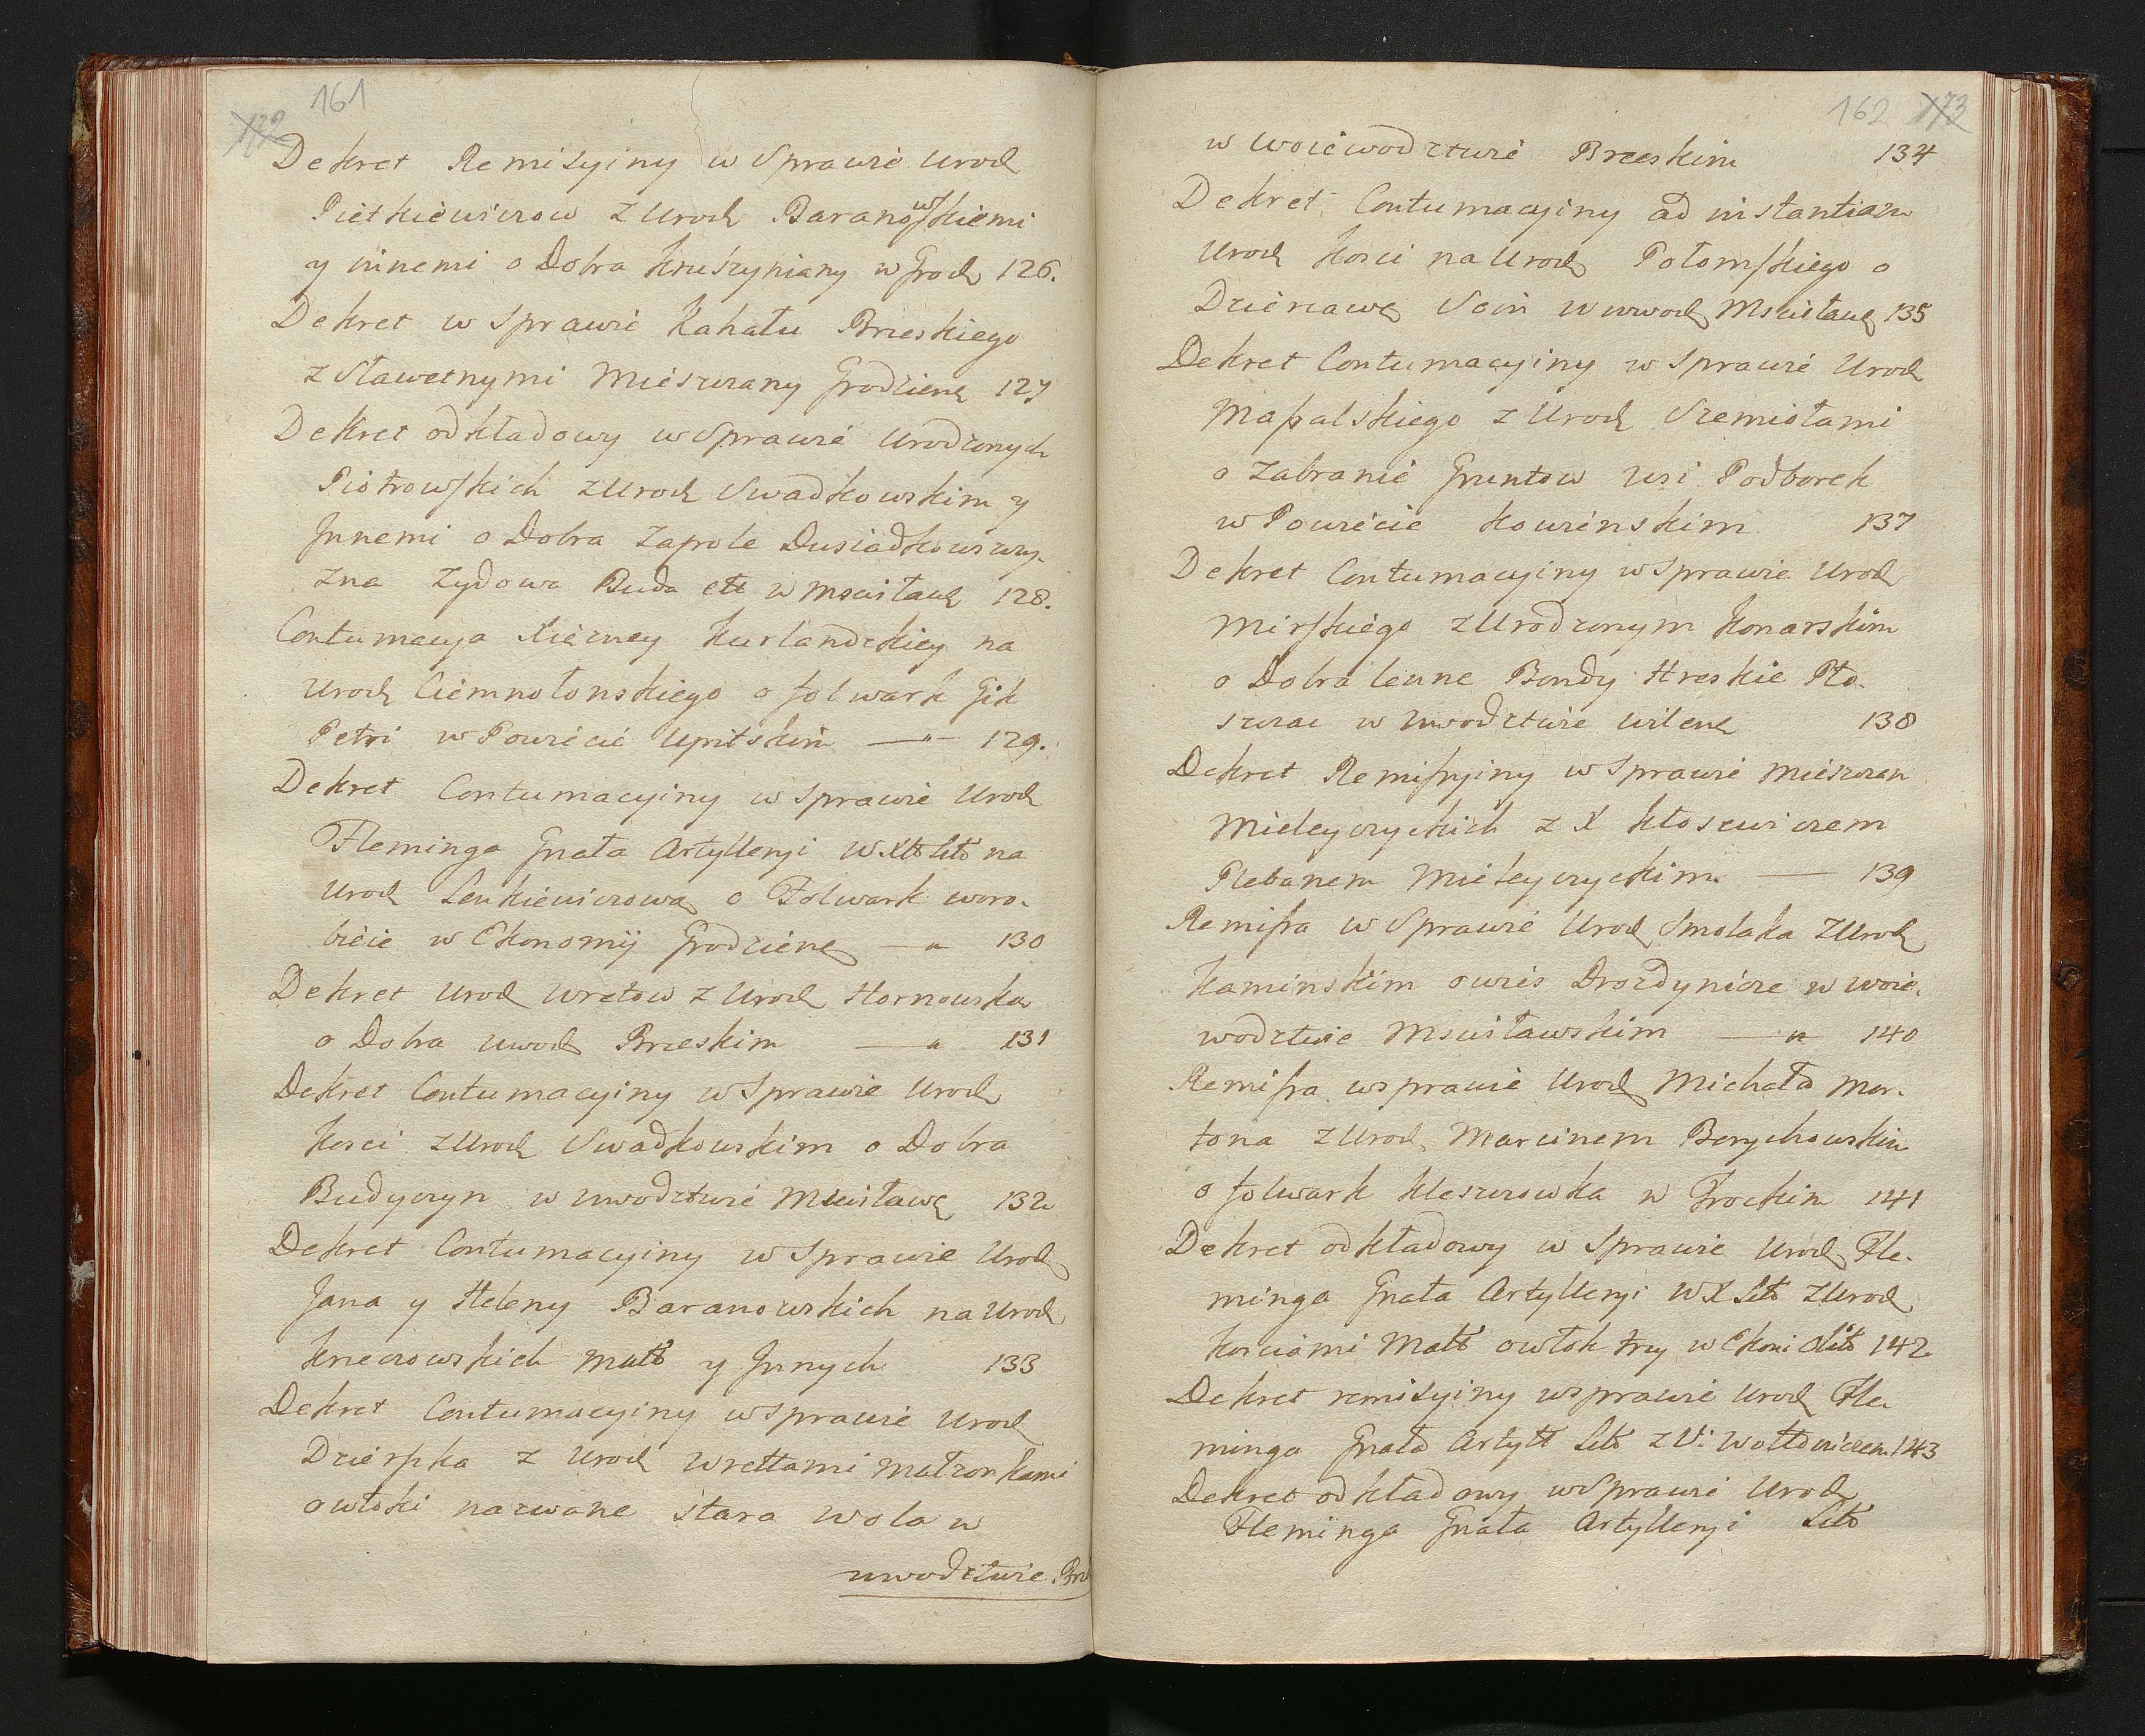 161
172
Dekret Remisyiny w Sprawie Urod
Pietkiewiczow z Urod Baranowskiemi
y innemi o Dobra Kruszyniany w Grod 126.
Dekret w Sprawie Kahału Brzeskiego
z Sławetnymi Mieszczany Grodzień 127
Dekret odkładowy w Sprawie Urodzonych
Piotrowskich z Urod Swadkowskim y
Jnnemi o Dobra Zapole Dusiadkowszczy-
zna Zydowa Buda ett w Mscisław 128.
Contumacya Xiężney Kurlandzkiey na
Urod Ciemnołonskiego o folwark Gik
Petri w Powiecie Upitskim — " — 129.
Dekret Contumacyiny w Sprawie Urod
Fleminga Gnała Artylleryi W X Litt na
Urod Lenkiewiczową o Folwark woro-
biecie w Ekonomij Grodzień — " 130
Dekret Urod Wretow z Urod Hornowską
o Dobra Uwod Brzeskim — " 131
Dekret Contumacyiny w Sprawie Urod
Kosci z Urod Swadkowskim o Dobra
Budyczyn w uwodztwie Mscisławs 132
Dekret Contumacyiny w Sprawie Urod
Jana y Heleny Baranowskich na Urod
Kneczowskich Małż y Jnnych 133
Dekret Contumacyiny w Sprawie Urod
Dzierzka z Urod Wrettami Małżonkami
o włoki nazwane Stara Wola w
uwodztwie Brz
162
173
w Woiewodztwie Brzeskim 134
Dekret Contumacyiny ad instantiam
Urod Kosci na Urod Połomskiego o
Dzierżawę Soin w uwod Mscisław 135
Dekret Contumacyiny w Sprawie Urod
Massalskiego z Urod Szemiotami
o Zabranie Gruntow wsi Podborek
w Powiecie Kowieńskim 137
Dekret Contumacyiny w Sprawie Urod
Mirskiego z Urodzonym Konarskim
o Dobra lenne Bondy Hreskie Pło-
szczac w uwodztwie wilen 138
Dekret Remissyiny w Sprawie Mieszczan
Mieleyczyckich z X Kłosewiczem
Plebanem Mieleyczyckim — 139
Remissa w Sprawie Urod Smolaka z Urod
Kaminskim o wieś Drozdynicze w woie-
wodztwie Mscisławskim — " 140
Remissa w sprawie Urod Michała Mar-
tona z Urod Marcinem Berychowskim
o folwark Kleszczowka w Trockim 141
Dekret odkładowy w Sprawie Urod Fle-
minga Gnała Artylleryi W X Litt z Urod
Kosciami Małż o włok trzy w Ekoni Olitt 142
Dekret remisyiny w sprawie Urod Fle-
minga Gnała Artyll Litt z U: Wołłowiczem 143
Dekret odkładowy w Sprawie Urod
Fleminga Gnała Artylleryi Litt